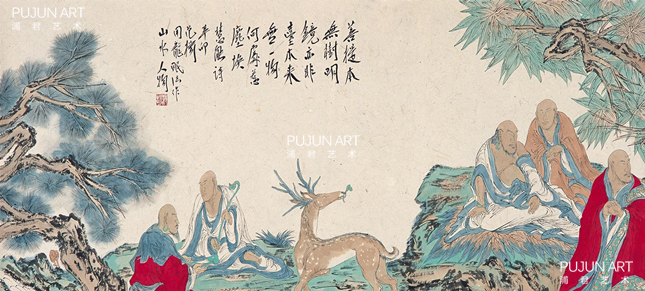 PUJUN ART
浦君艺术
菩提本
無樹明
鏡亦非
臺本來
無一物
何處惹
塵埃
慧能詩
辛卯
山水人物
PUJUN ART
浦君艺术
PUJUN ART
浦君艺术
PUJUN ART
浦君艺术